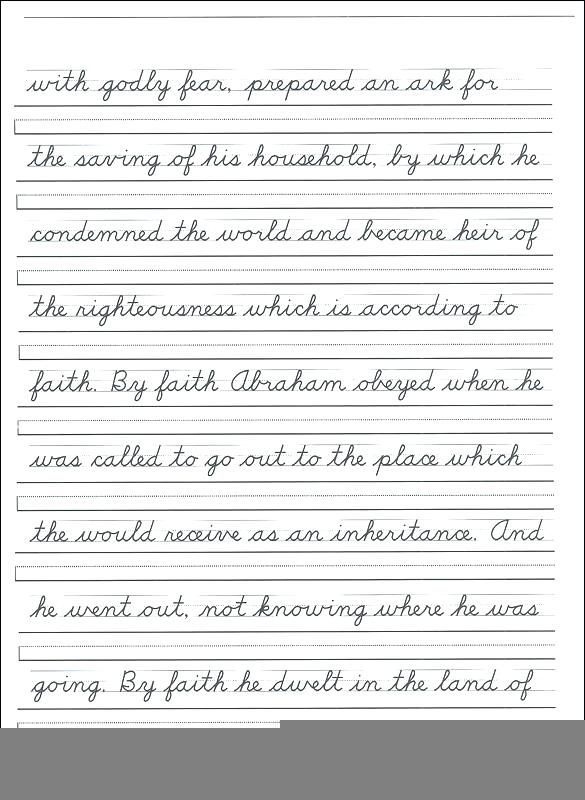 with godly fear, prepared an ark for
the saving of his household, by which he
condemned the world and became heir of
the righteousness which is according to
faith. By faith Abraham obeyed when he
was called to go out to the place which
the would receive as an inheritance. And
he went out, not knowing where he was
going. By faith he dwelt in the land of